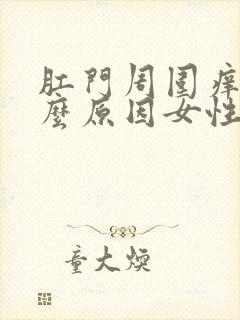 肛門周圍痒
麼原因女性
童大煥